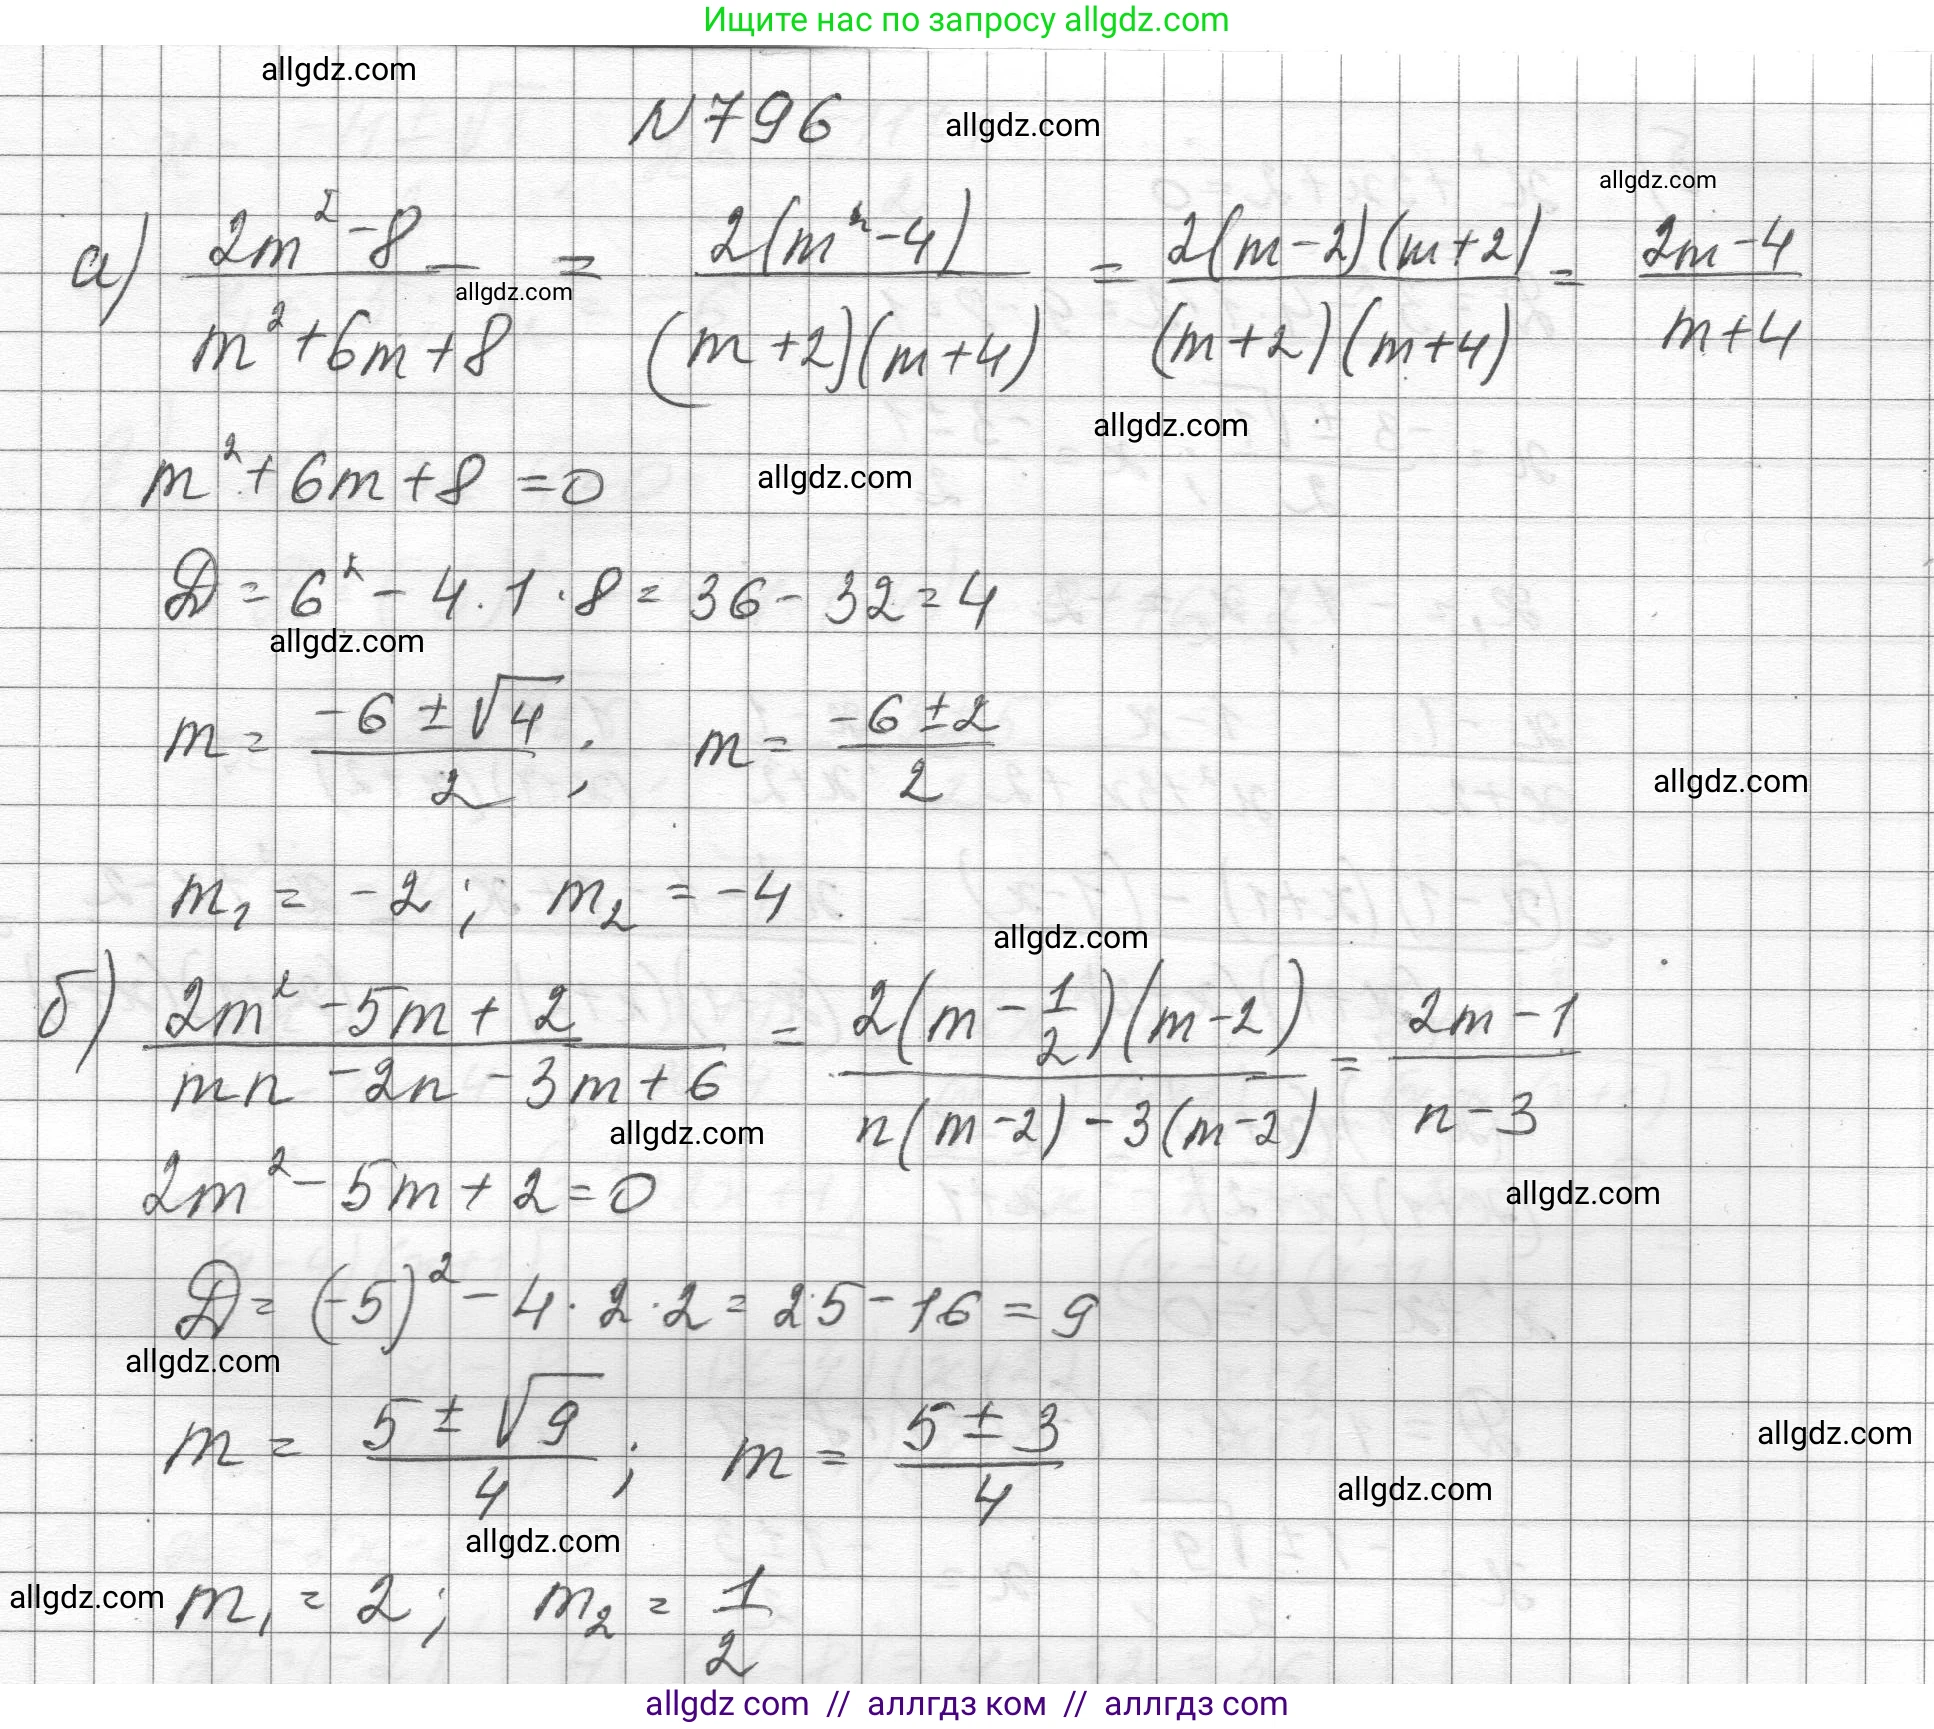 Ищите нас по запросу allgdz.com
allgdz.com
N796 allgdz.com
allgdz.com
а) (2m² - 8)/(m² + 6m + 8) = 2(m² - 4)/((m + 2)(m + 4)) = 2(m - 2)(m + 2)/((m + 2)(m + 4)) = (2m - 4)/(m + 4)
allgdz.com
allgdz.com
m² + 6m + 8 = 0 allgdz.com
D = 6² - 4 · 1 · 8 = 36 - 32 = 4
allgdz.com
m = (-6 ± √4)/2 ; m = (-6 ± 2)/2
allgdz.com
m₁ = -2 ; m₂ = -4
allgdz.com
б) (2m² - 5m + 2)/(mn - 2n - 3m + 6) = 2(m - 1/2)(m - 2)/(n(m - 2) - 3(m - 2)) = (2m - 1)/(n - 3)
allgdz.com
2m² - 5m + 2 = 0 allgdz.com
D = (-5)² - 4 · 2 · 2 = 25 - 16 = 9
allgdz.com
m = (5 ± √9)/4 ; m = (5 ± 3)/4
allgdz.com
allgdz.com
allgdz.com
allgdz.com m₁ = 2 ; m₂ = 1/2
allgdz com // аллгдз ком // аллгдз com